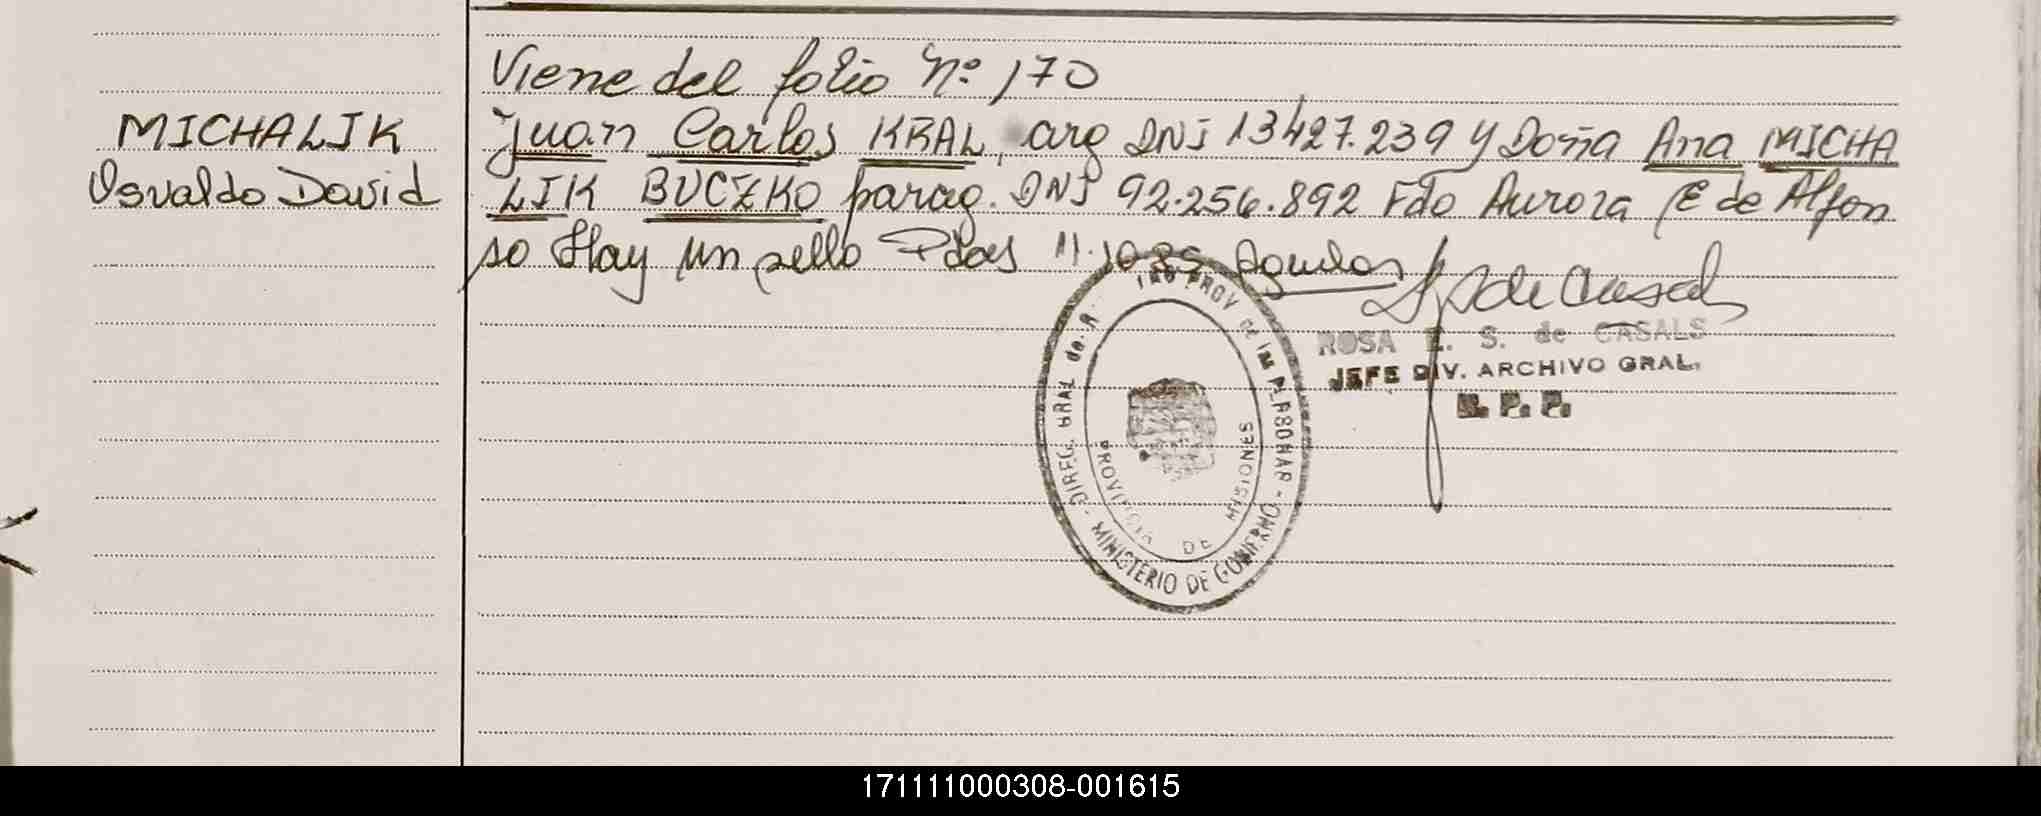 Viene del folio Nº 170
MICHALIK
Osvaldo David
Juan Carlos KRAL, arg DNI 13427.239 y Doña Ana MICHA
LIK BUCZKO parag. DNI 92.256.892 Fdo Aurora E de Alfon
so Hay un sello Pdas 11.10.85
de Casals
ROSA E. S. de CASALS
JEFE DIV. ARCHIVO GRAL.
R. P. P.
DIREC. GRAL de R PROV de las PERSONAS - MINISTERIO DE GOBIERNO -
PROVINCIA DE MISIONES
171111000308-001615